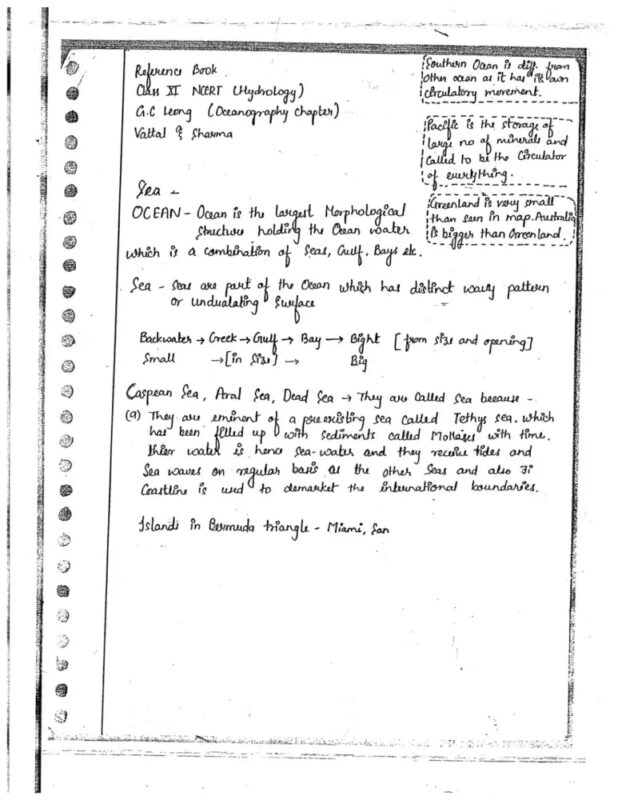 Reference Book
Class XI NCERT (Hydrology)
G.C Leong (Oceanography chapter)
Vattal & Sharma
Southern Ocean is diff. from
other ocean as it has it's own
circulatory movement.
Pacific is the storage of
large no of minerals and
called to be the Circulator
of everything.
Greenland is very small
than seen in map. Australia
is bigger than Greenland.
Sea -
OCEAN - Ocean is the largest Morphological
Structure holding the Ocean water
which is a combination of Seas, Gulf, Bays etc.
Sea - Seas are part of the Ocean which has distinct wavy pattern
or undualating Surface
Backwater → Creek → Gulf → Bay → Bight [from size and opening]
Small → [in size] → Big
Caspean Sea, Aral Sea, Dead Sea → They are called Sea because -
(a) They are eminent of a pre existing sea called Tethys sea. which
has been filled up with sediments called Mollases with time.
water is hence sea-water and they receive tides and
Sea waves on regular basis as the other Seas and also
Coastline is used to demarket the international boundaries.
Islands in Bermuda triangle - Miami, San